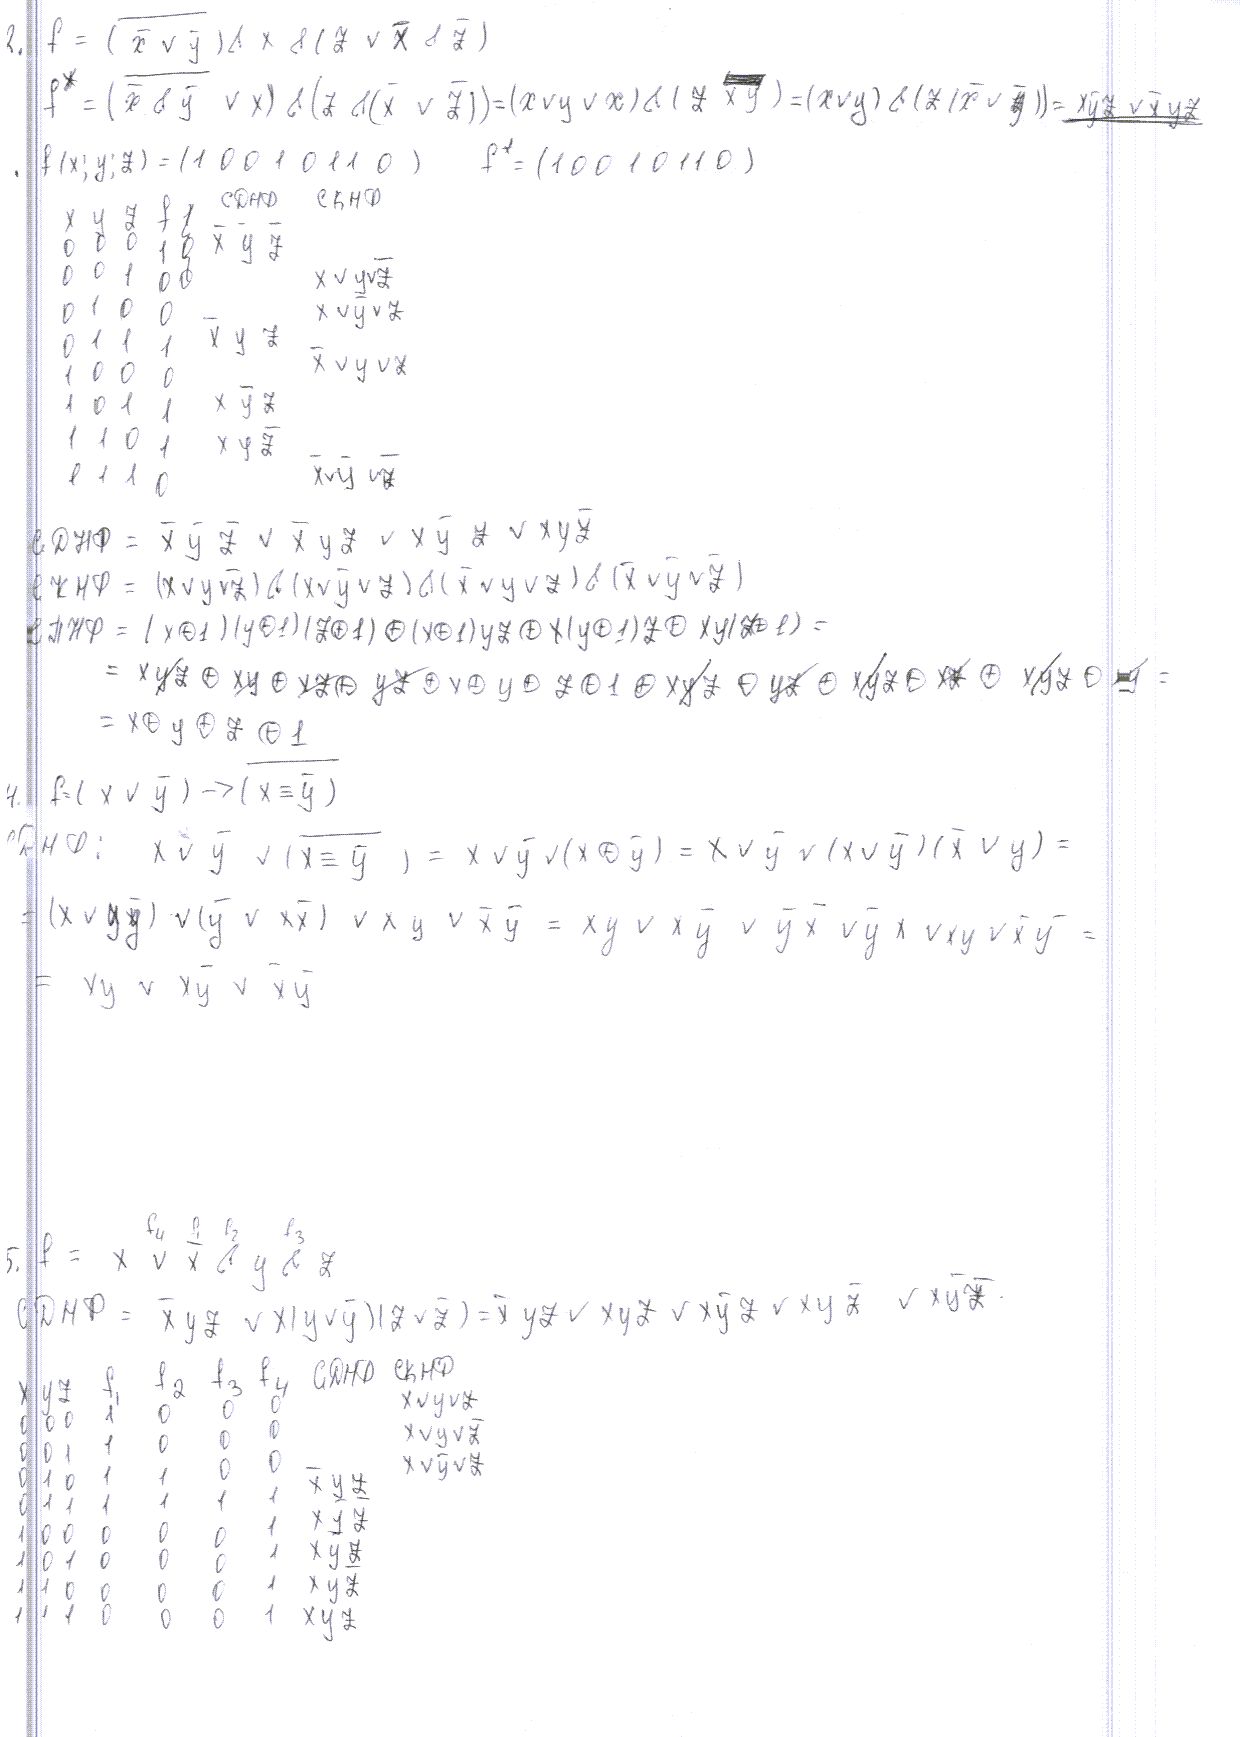 2. f = (\overline{x̄ ∨ ȳ}) & x & (z ∨ x̄ & z̄)
f* = (\overline{x̄ & ȳ} ∨ x) & (z & (x̄ ∨ z̄)) = (x ∨ y ∨ x) & (z \overline{x y}) = (x ∨ y) & (z (x̄ ∨ ȳ)) = xȳz ∨ x̄yz
. f(x; y; z) = (1 0 0 1 0 1 1 0) f* = (1 0 0 1 0 1 1 0)
x y z f СДНФ СКНФ
0 0 0 1 x̄ ȳ z̄
0 0 1 0 x ∨ y ∨ z̄
0 1 0 0 x ∨ ȳ ∨ z
0 1 1 1 x̄ y z
1 0 0 0 x̄ ∨ y ∨ z
1 0 1 1 x ȳ z
1 1 0 1 x y z̄
1 1 1 0 x̄ ∨ ȳ ∨ z̄
СДНФ = x̄ ȳ z̄ ∨ x̄ y z ∨ x ȳ z ∨ x y z̄
СКНФ = (x ∨ y ∨ z̄) & (x ∨ ȳ ∨ z) & (x̄ ∨ y ∨ z) & (x̄ ∨ ȳ ∨ z̄)
СПНФ = (x⊕1)(y⊕1)(z⊕1) ⊕ (x⊕1)yz ⊕ x(y⊕1)z ⊕ xy(z⊕1) =
= xyz ⊕ xy ⊕ xz ⊕ yz ⊕ x ⊕ y ⊕ z ⊕ 1 ⊕ xyz ⊕ yz ⊕ xyz ⊕ xz ⊕ xyz ⊕ y =
= x ⊕ y ⊕ z ⊕ 1
4. f = (x ∨ ȳ) → (\overline{x ≡ ȳ})
СДНФ: x ∨ ȳ ∨ (\overline{x ≡ ȳ}) = x ∨ ȳ ∨ (x ⊕ ȳ) = x ∨ ȳ ∨ (x ∨ ȳ)(x̄ ∨ y) =
= (x ∨ yȳ) ∨ (ȳ ∨ xx̄) ∨ x y ∨ x̄ ȳ = xy ∨ xȳ ∨ ȳx̄ ∨ ȳx ∨ xy ∨ x̄ȳ =
= xy ∨ xȳ ∨ x̄ȳ
f4 f1 f2 f3
5. f = x ∨ x̄ & y & z
СДНФ = x̄yz ∨ x(y ∨ ȳ)(z ∨ z̄) = x̄yz ∨ xyz ∨ xȳz ∨ xyz̄ ∨ xȳz̄.
x y z f1 f2 f3 f4 СДНФ СКНФ
0 0 0 1 0 0 0 x ∨ y ∨ z
0 0 1 1 0 0 0 x ∨ y ∨ z̄
0 1 0 1 1 0 0 x ∨ ȳ ∨ z
0 1 1 1 1 1 1 x̄ y z
1 0 0 0 0 0 1 x ȳ z̄
1 0 1 0 0 0 1 x ȳ z
1 1 0 0 0 0 1 x y z̄
1 1 1 0 0 0 1 x y z